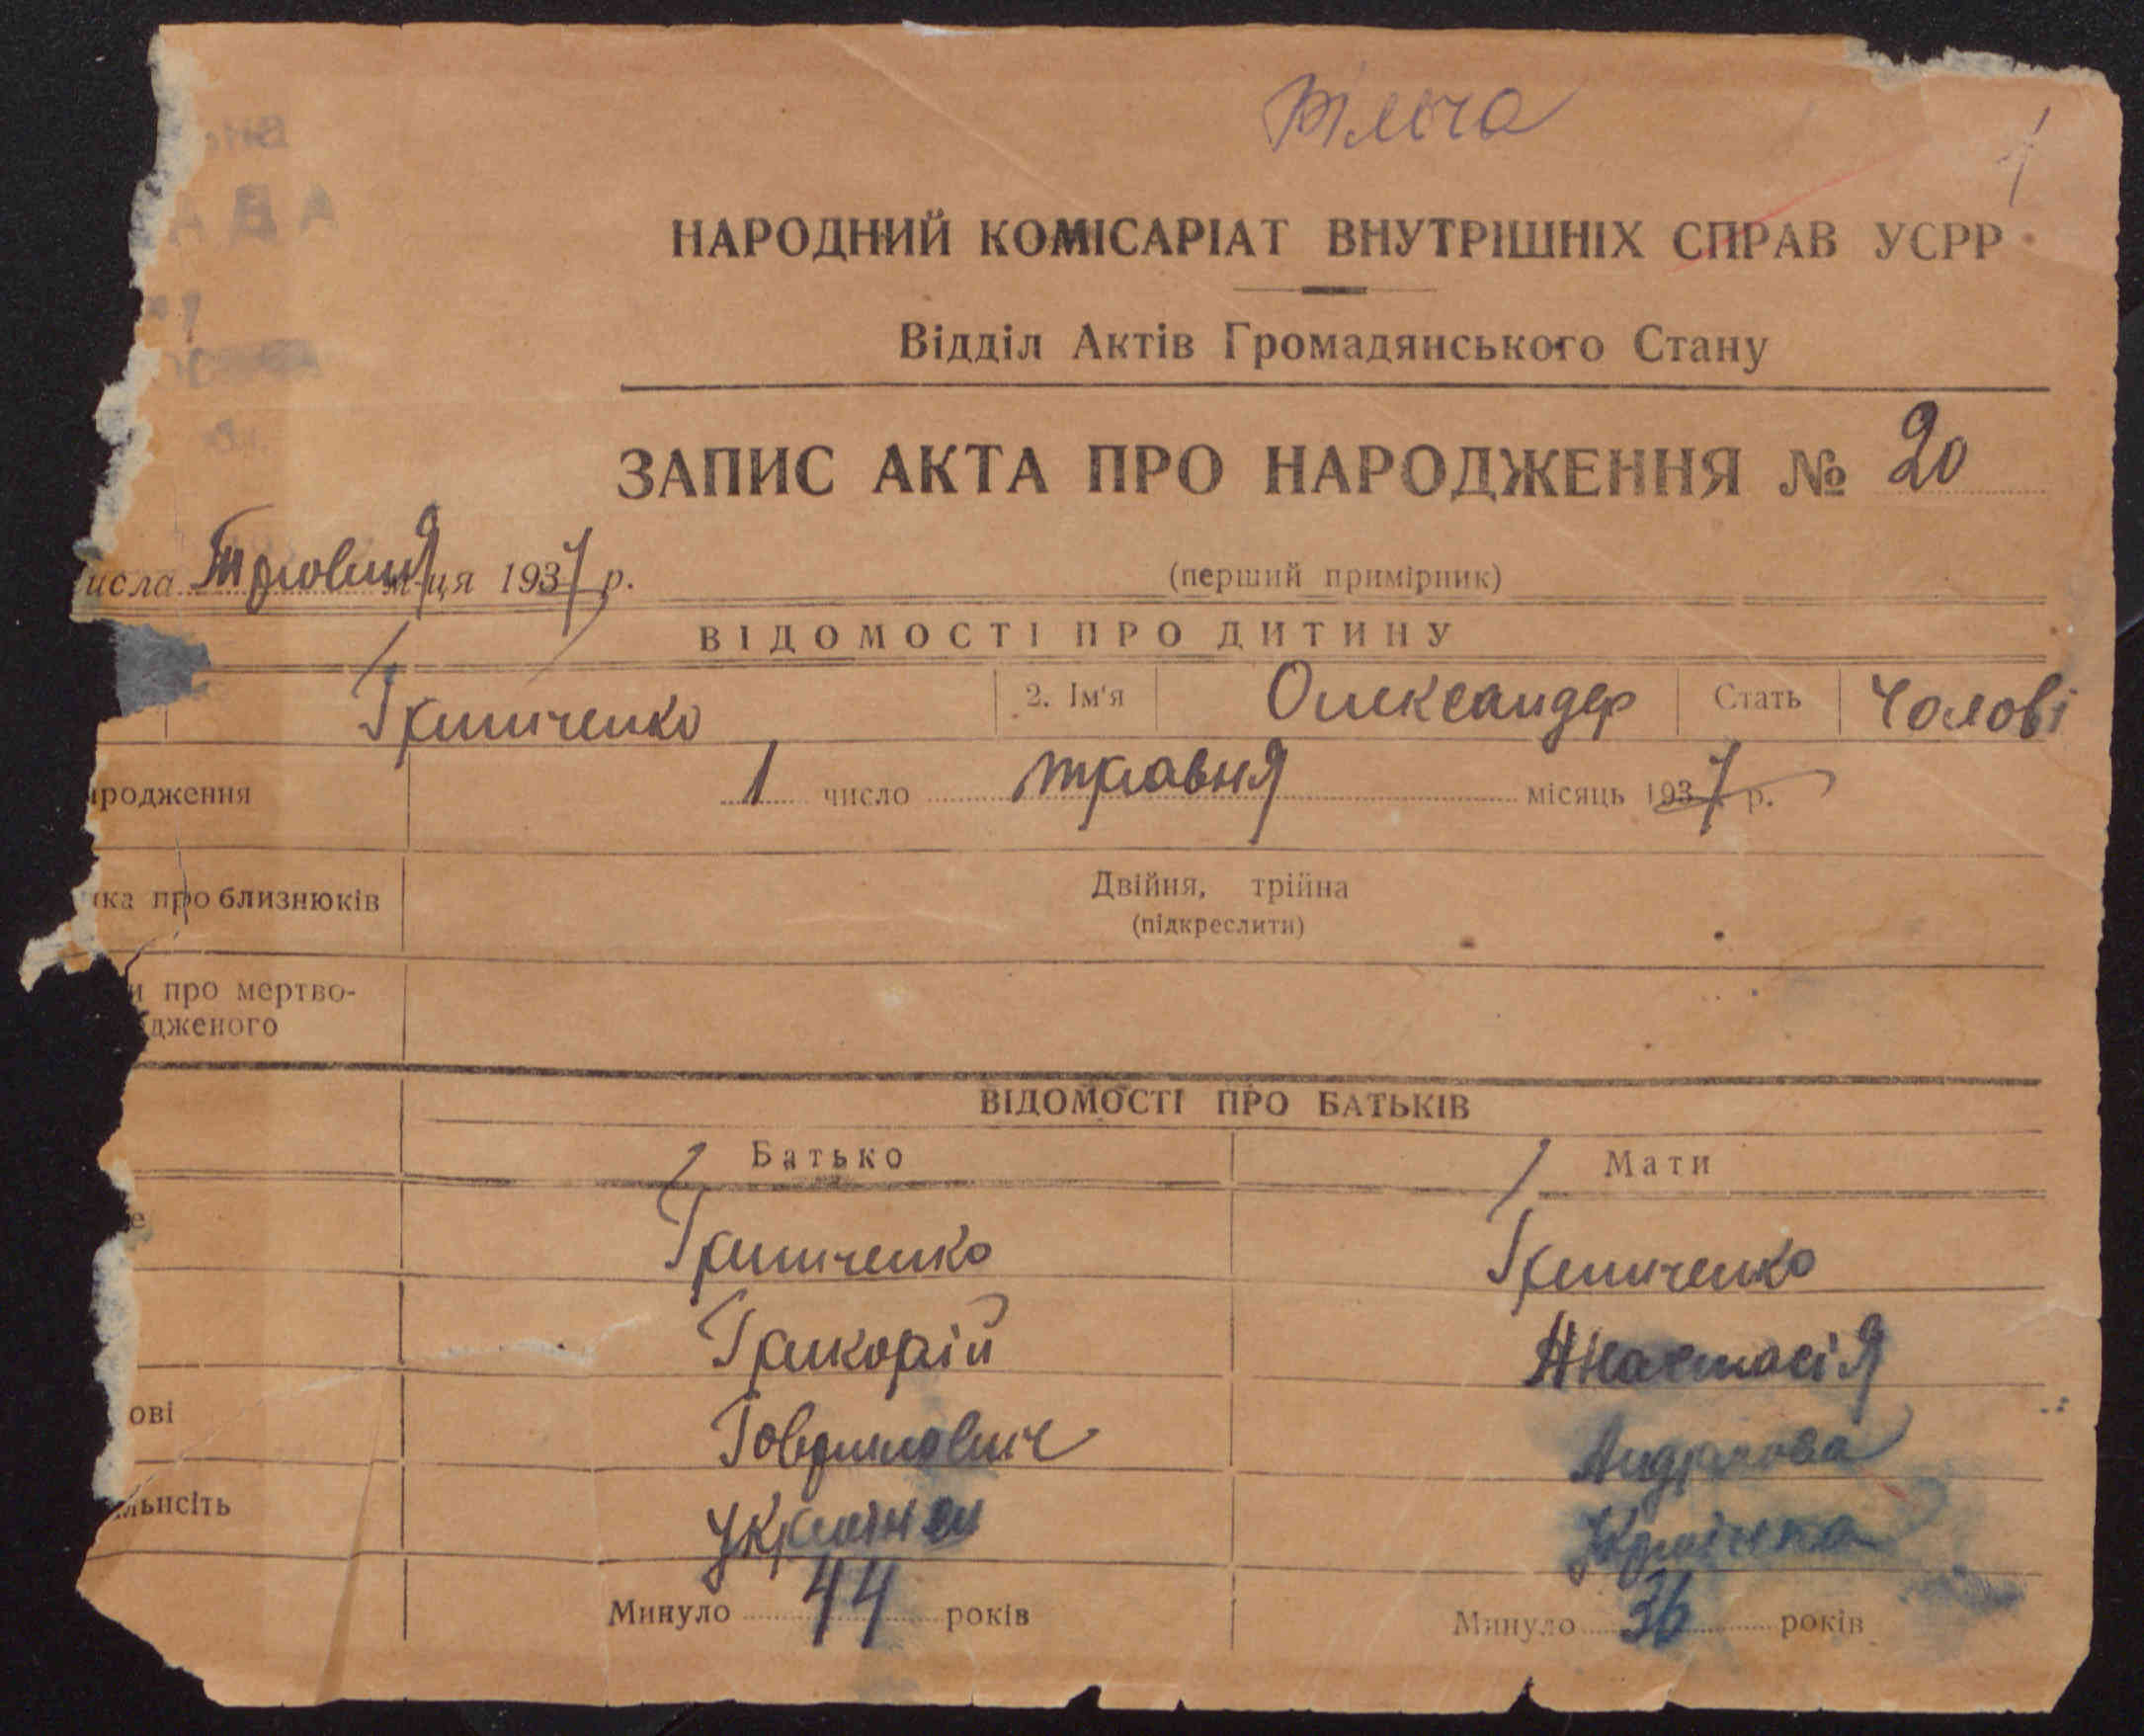 1
НАРОДНИЙ КОМІСАРІАТ ВНУТРІШНІХ СПРАВ УСРР
Відділ Актів Громадянського Стану
ЗАПИС АКТА ПРО НАРОДЖЕННЯ № 20
исла Травня м-ця 1937 р. (перший примірник)
ВІДОМОСТІ ПРО ДИТИНУ
Гриниченко 2. Ім'я Олександер Стать Чолові
ародження 1 число травня місяць 1937 р.
тка про близнюків Двійня, трійна
(підкреслити)
и про мертво-
дженого
ВІДОМОСТІ ПРО БАТЬКІВ
Батько Мати
е Гриниченко Гриниченко
Григорій Анастасія
ові Говрилович Андріова
льнсіть Українець Українка
Минуло 44 років Минуло 36 років